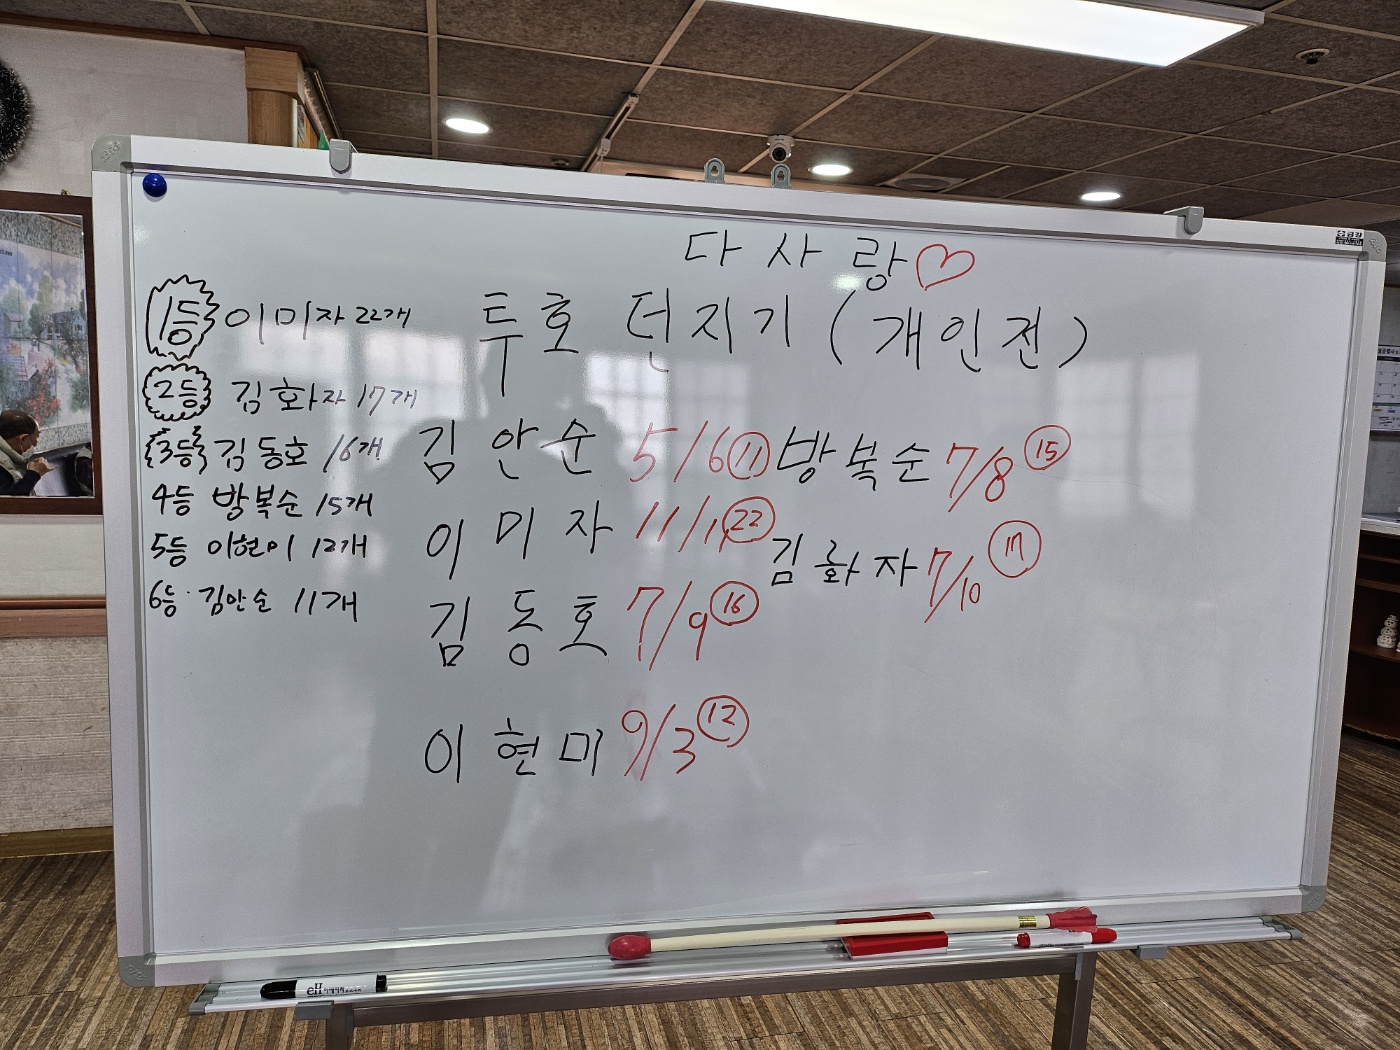 다사랑♡
투호 던지기 (개인전)
1등 이미자 22개
2등 김화자 17개
3등 김동호 16개
4등 방복순 15개
5등 이현이 12개
6등 김안순 11개
김안순 5/6 11
이미자 11/11 22
김동호 7/9 16
이현미 9/3 12
방복순 7/8 15
김화자 7/10 17